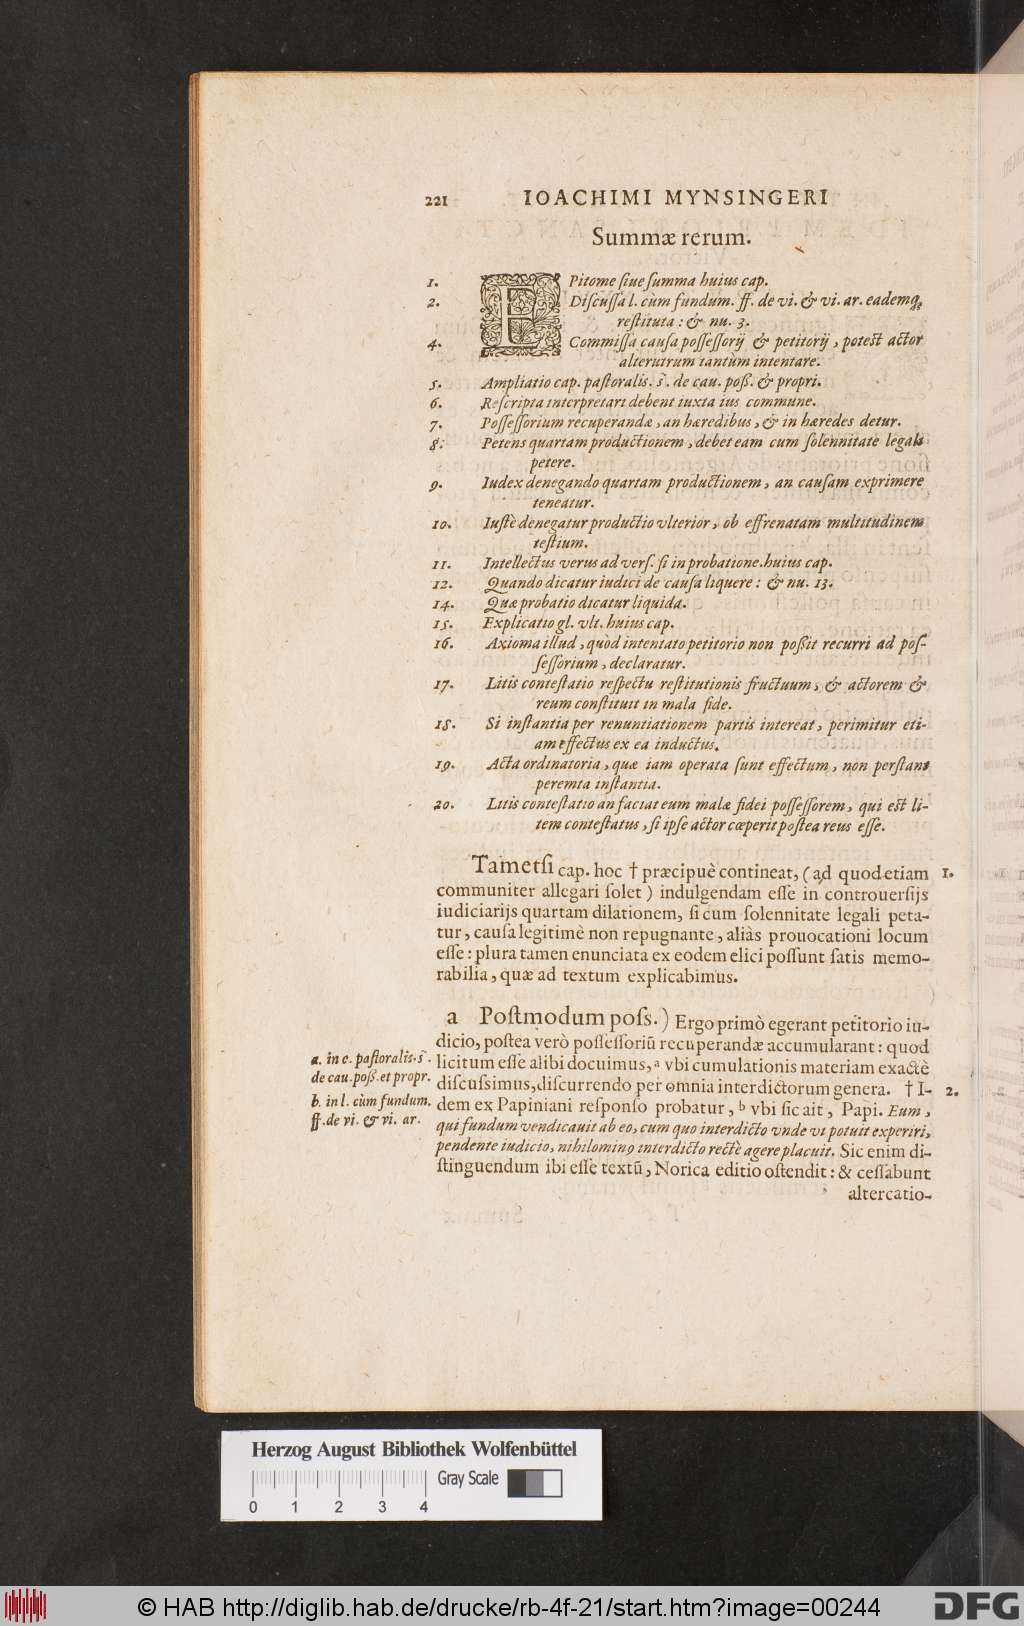 221 IOACHIMI MYNSINGERI
Summæ rerum.
1. EPitome ſiue ſumma huius cap.
2. Diſcuſſa l. cùm fundum. ff. de vi. & vi. ar. eademq́;
reſtituta : & nu. 3.
4. Commiſſa cauſa poſſeſſorij & petitorij, poteſt actor
alterutrum tantùm intentare.
5. Ampliatio cap. paſtoralis. §. de cau. poß. & propri.
6. Reſcripta interpretari debent iuxta ius commune.
7. Poſſeſſorium recuperandæ, an hæredibus, & in hæredes detur.
8. Petens quartam productionem, debet eam cum ſolennitate legali
petere.
9. Iudex denegando quartam productionem, an cauſam exprimere
teneatur.
10. Iuſtè denegatur productio vlterior, ob effrenatam multitudinem
teſtium.
11. Intellectus verus ad verſ. ſi in probatione. huius cap.
12. Quando dicatur iudici de cauſa liquere : & nu. 13.
14. Quæ probatio dicatur liquida.
15. Explicatio gl. vlt. huius cap.
16. Axioma illud, quòd intentato petitorio non poßit recurri ad poſ-
ſeſſorium, declaratur.
17. Litis conteſtatio reſpectu reſtitutionis fructuum, & actorem &
reum conſtituit in mala fide.
18. Si inſtantia per renuntiationem partis intereat, perimitur eti-
am effectus ex ea inductus.
19. Acta ordinatoria, quæ iam operata ſunt effectum, non perſtant
peremta inſtantia.
20. Litis conteſtatio an faciat eum malæ fidei poſſeſſorem, qui eſt li-
tem conteſtatus, ſi ipſe actor cœperit poſtea reus eſſe.
Tametſi cap. hoc † præcipuè contineat, (ad quod etiam 1.
communiter allegari ſolet) indulgendam eſſe in controuerſijs
iudiciarijs quartam dilationem, ſi cum ſolennitate legali peta-
tur, cauſa legitimè non repugnante, aliàs prouocationi locum
eſſe : plura tamen enunciata ex eodem elici poſſunt ſatis memo-
rabilia, quæ ad textum explicabimus.
a Poſtmodum poſs.) Ergo primò egerant petitorio iu-
dicio, poſtea verò poſſeſſoriũ recuperandæ accumularant : quod
licitum eſſe alibi docuimus, ᵃ vbi cumulationis materiam exactè
diſcuſsimus, diſcurrendo per omnia interdictorum genera. † I- 2.
dem ex Papiniani reſponſo probatur, ᵇ vbi ſic ait, Papi. Eum,
qui fundum vendicauit ab eo, cum quo interdicto vnde vi potuit experiri,
pendente iudicio, nihilominꝰ interdicto rectè agere placuit. Sic enim di-
ſtinguendum ibi eſſe textũ, Norica editio oſtendit : & ceſſabunt
altercatio-
a. in c. paſtoralis. §.
de cau. poß. et propr.
b. in l. cùm fundum.
ff. de vi. & vi. ar.
Herzog August Bibliothek Wolfenbüttel
Gray Scale
0 1 2 3 4
© HAB http://diglib.hab.de/drucke/rb-4f-21/start.htm?image=00244
DFG